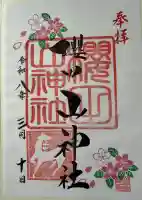 奉拝
櫻山神社
櫻山神社
令和八年三月十日